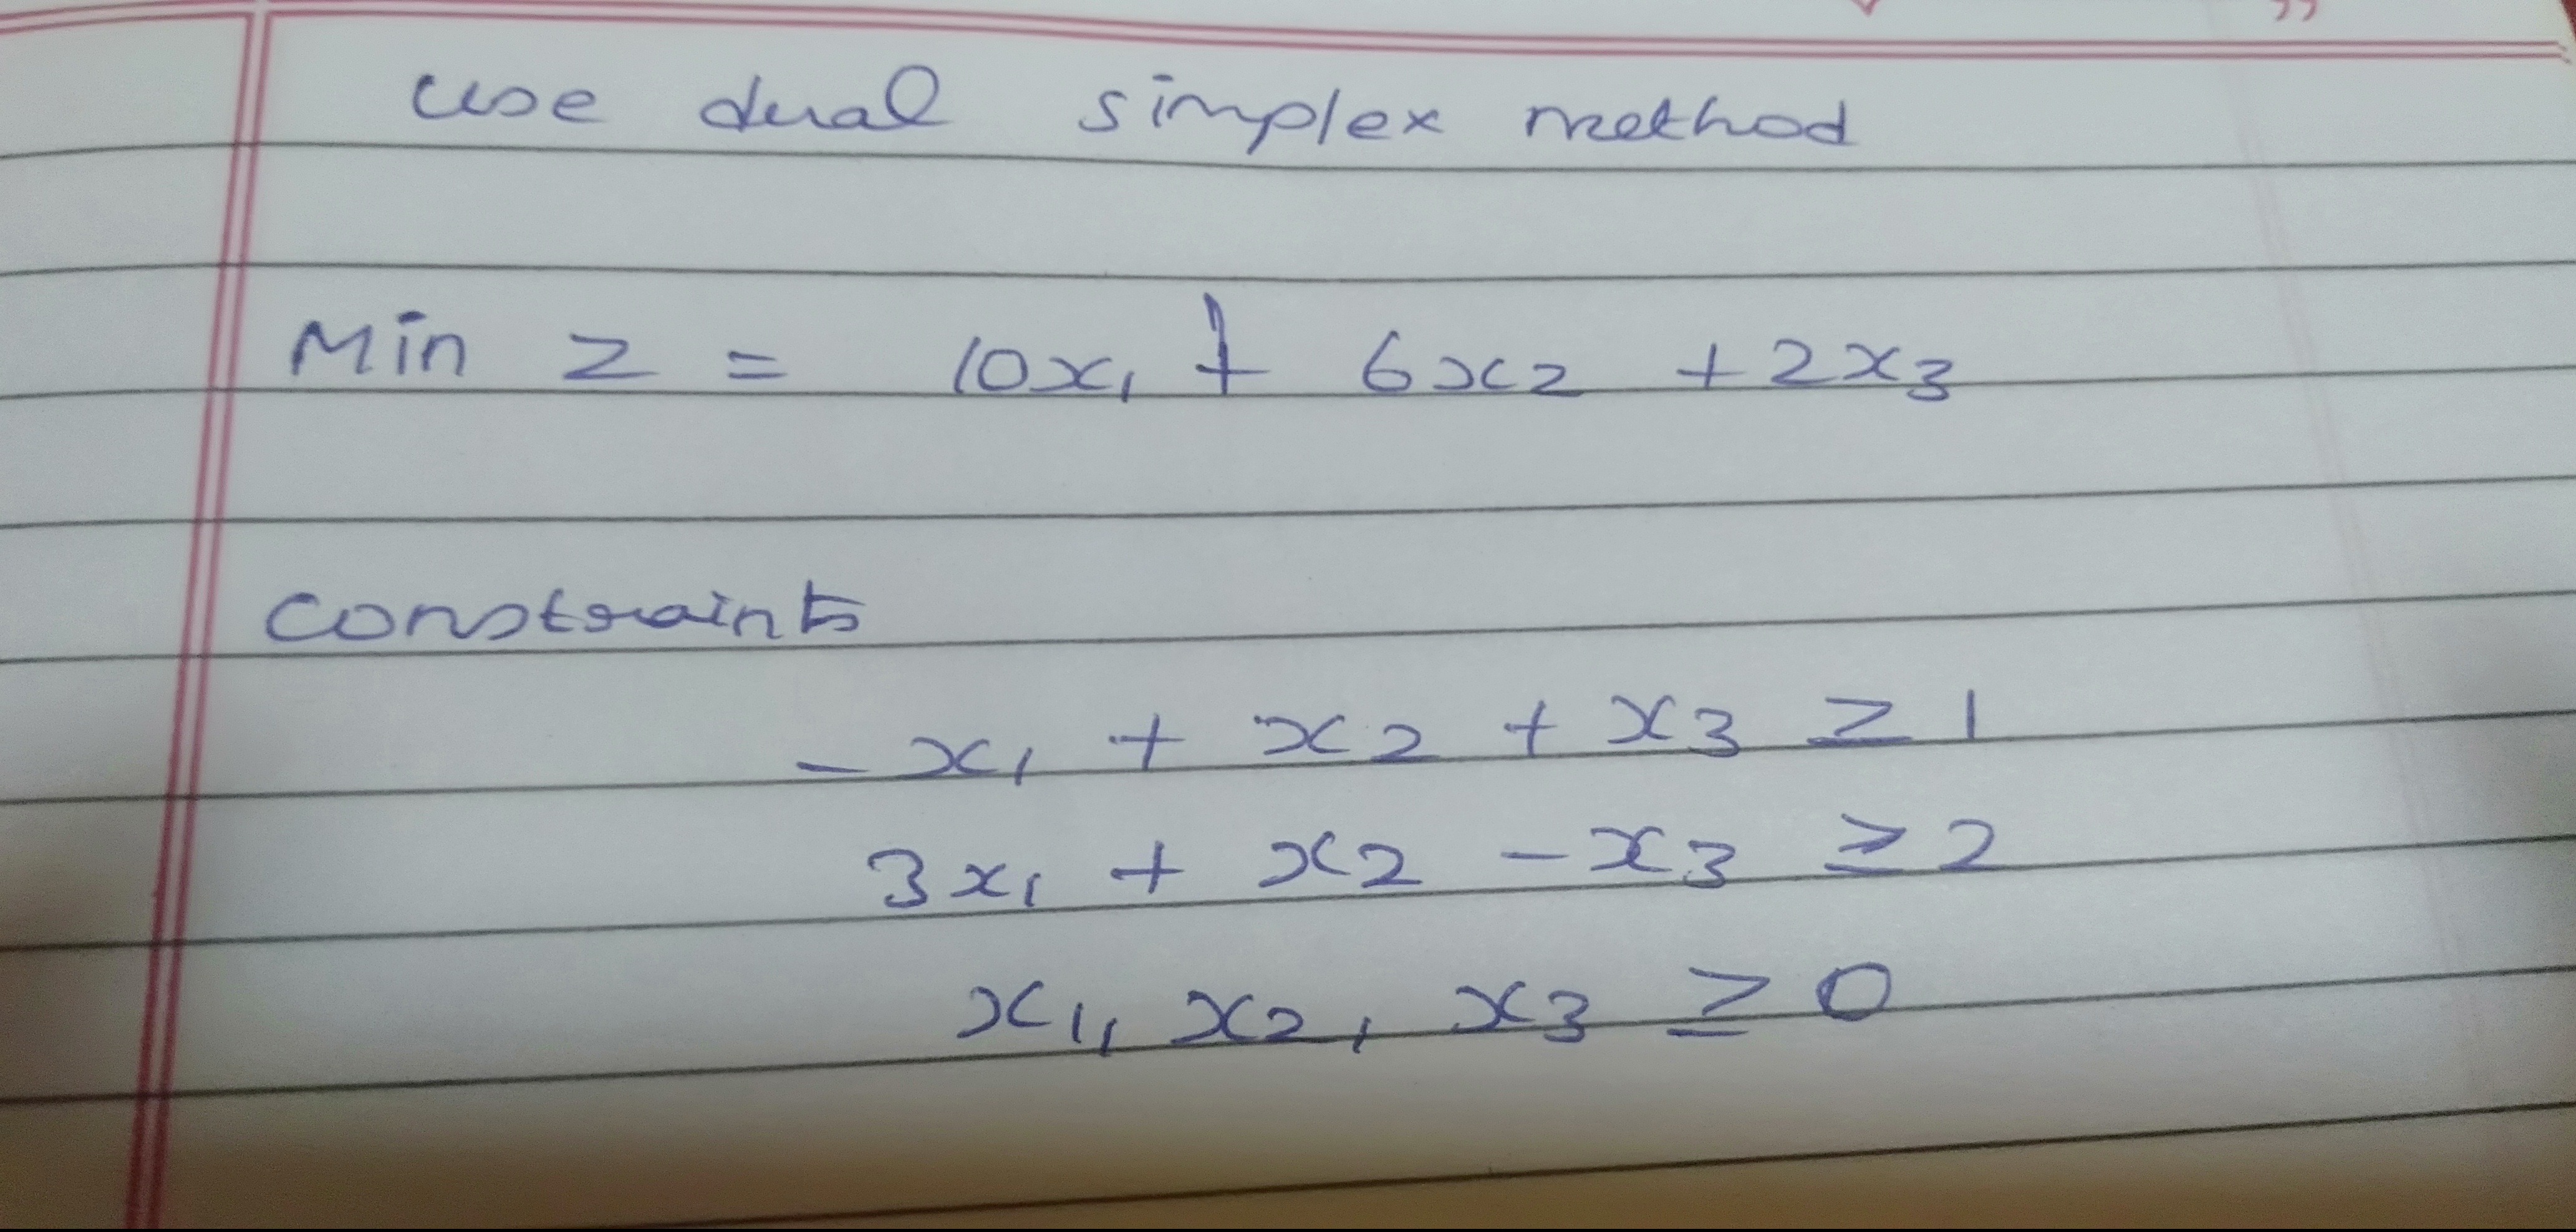 use dual simplex method
Min Z = 10x₁ + 6x₂ + 2x₃
constraints
- x₁ + x₂ + x₃ ≥ 1
3x₁ + x₂ - x₃ ≥ 2
x₁, x₂, x₃ ≥ 0